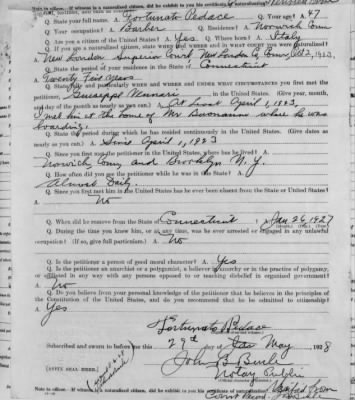 Q. State your full name. A. Fortunato Pedace Q. Your age? A. 47
Q. Your occupation? A. Q. Residence? A. Norwich Conn
Q. Are you a citizen of the United States? A. Yes Q. Where born? A. Italy
Q. If you are a naturalized citizen, state when and where and in what court you were naturalized?
A. New London Superior Court New London Conn, 1923,
Q. State the period of your residence in the State of Connecticut
A. Twenty years
Q. State fully and particularly when and where and under what circumstances you first met the
petitioner, Guiseppe (Give year, month,
and day of the month as nearly as you can.) A. At least April 1, 1923,
I met him at the home of Mr Buonanno where he was
boarding.
Q. State the period during which he has resided continuously in the United States. (Give dates as
nearly as you can.) A. Since April 1, 1923
Q. Since you first met the petitioner in the United States, where has he lived? A.
Norwich Conn and Brooklyn N.Y.
Q. How often did you see the petitioner while he was in this State? A.
Almost Daily
Q. Since you first met him in the United States has he ever been absent from the State or United States?
A. No
Q. When did he remove from the State of Connecticut? Jan 26, 1927
Q. During the time you knew him, or at any time, was he ever arrested or engaged in any unlawful
occupation? (If so, give full particulars.) A. No
Q. Is the petitioner a person of good moral character? A. Yes
Q. Is the petitioner an anarchist or a polygamist, a believer in anarchy or in the practice of polygamy,
or affiliated in any way with any persons opposed to or teaching disbelief in organized government?
A. No
Q. Do you believe from your personal knowledge of the petitioner that he believes in the principles
of the Constitution of the United States, and do you recommend that he be admitted to citizenship?
A. Yes
Fortunato Pedace
Subscribed and sworn to before me this 29th day of May, 1928
John B.
[AFFIX SEAL HERE.] Notary Public
Note to officer. If witness is a naturalized citizen, did he exhibit to you his evidence of naturalization?